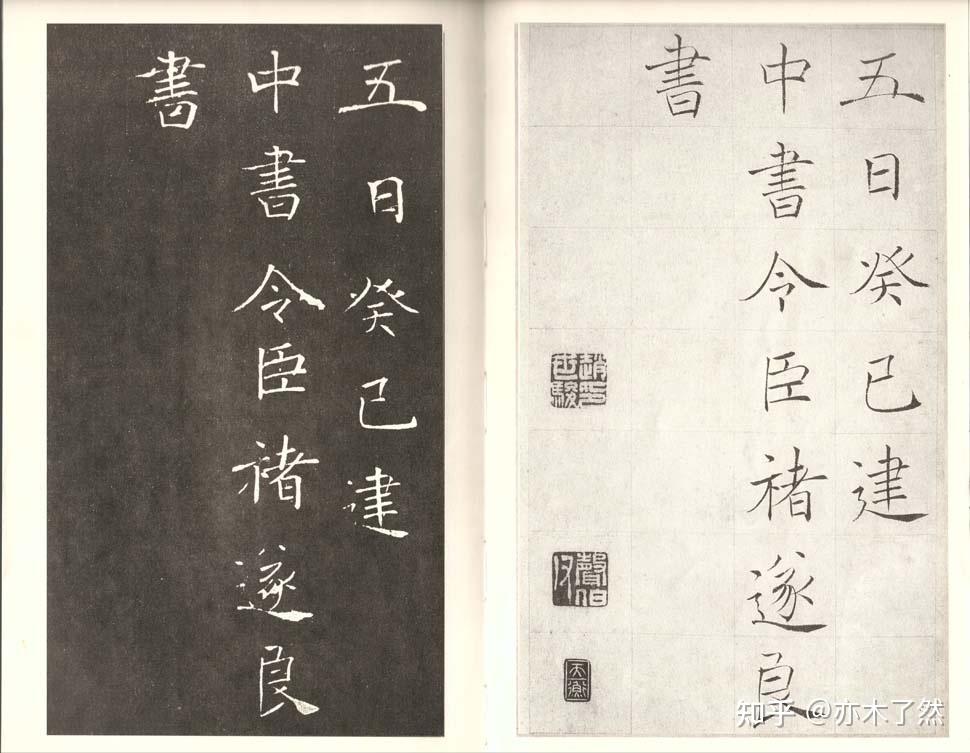 五日癸巳建
中書令臣褚遂良
書
趙印世駿
聲伯
五日癸巳建
中書令臣褚遂良
書
知乎 @亦木了然